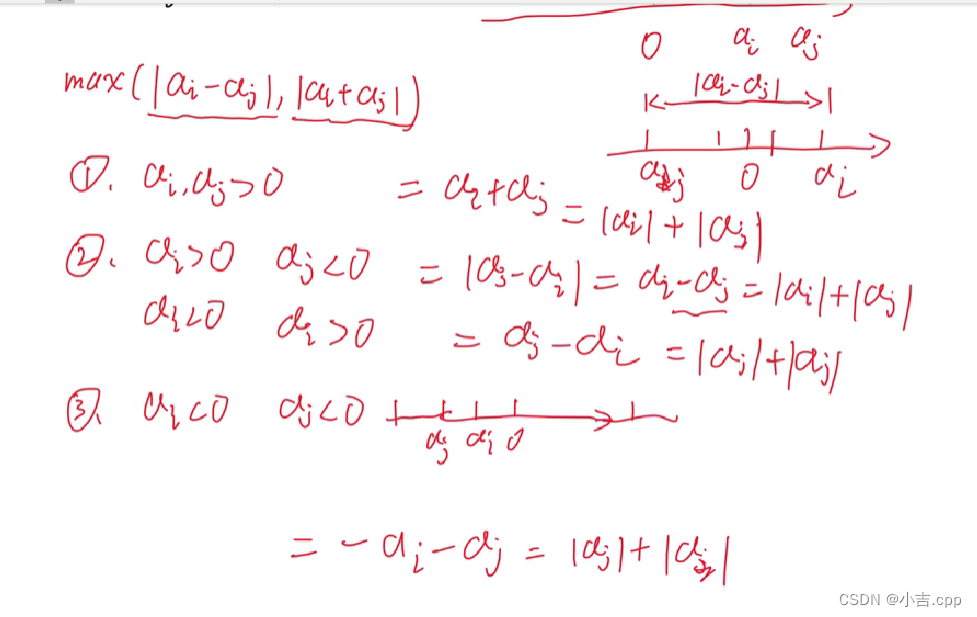 0 ai aj
max(|ai-aj|, |ai+aj|)
|ai-aj|
aj 0 ai
①. ai, aj>0 = ai+aj = |ai|+|aj|
②. ai>0 aj<0 = |aj-ai| = ai-aj = |ai|+|aj|
ai<0 ai>0 = aj-ai = |aj|+|aj|
③. ai<0 aj<0
aj ai 0
= -ai-aj = |aj|+|aj|
CSDN @小吉.cpp